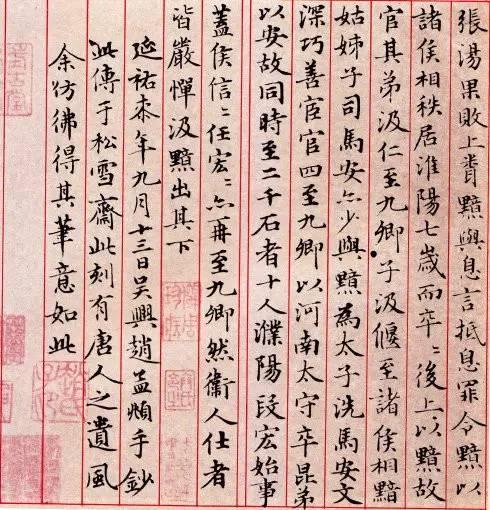 張湯果敗上聞黯與息言抵息罪令黯以
諸侯相秩居淮陽七歲而卒〻後上以黯故
官其弟汲仁至九卿子汲偃至諸侯相黯
姑姊子司馬安亦少與黯為太子洗馬安文
深巧善宦官四至九卿以河南太守卒昆弟
以安故同時至二千石者十人濮陽段宏始事
蓋侯信〻任宏〻亦再至九卿然衛人仕者
皆嚴憚汲黯出其下
延祐柒年九月十三日吳興趙孟頫手鈔
此傳于松雪齋此刻有唐人之遺風
余仿佛得其筆意如此